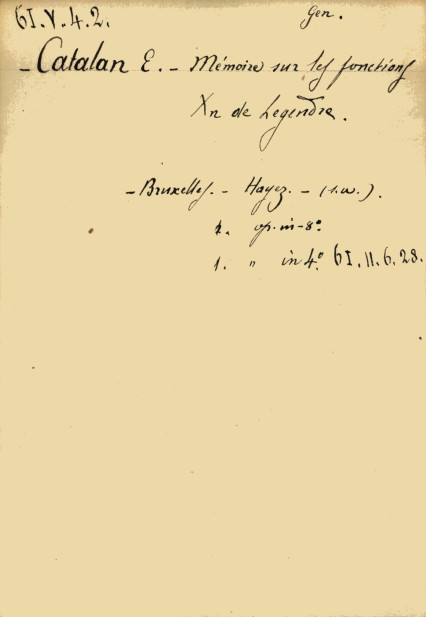 61.V.4.2.
Gen.
- Catalan E. - Mémoire sur les fonctions
Xn de Legendre.
- Bruxelles. - Hayez. - (s.a.).
1. op. in-8°.
1. " in 4°. 61.11.6.28.